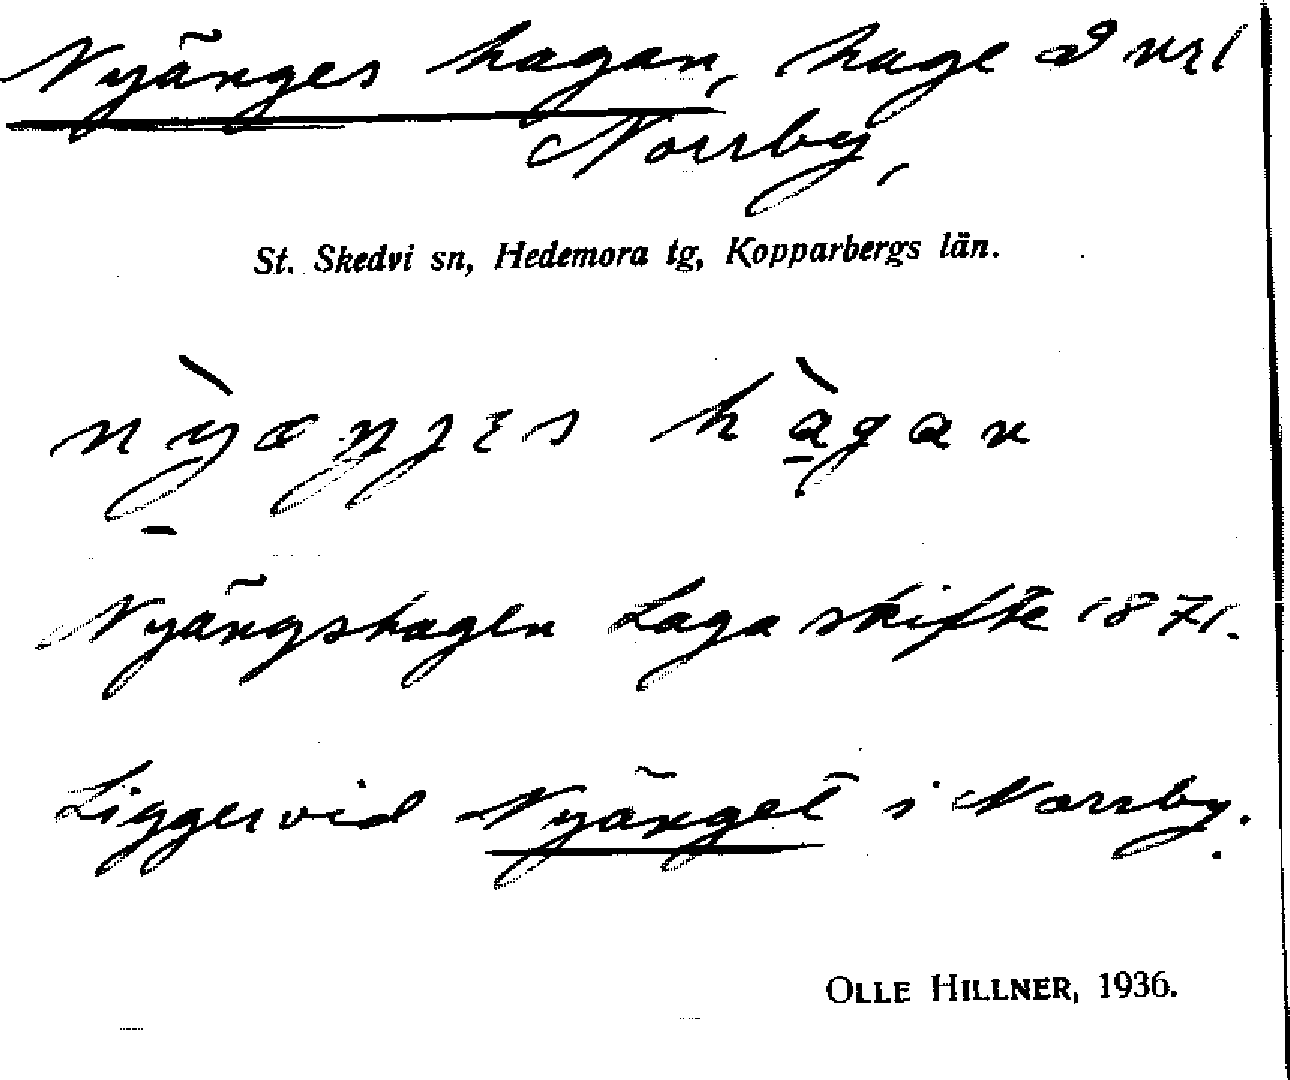 Nyänges hagan, hage å nr 1
Norrby,
St. Skedvi sn, Hedemora tg, Kopparbergs län.
nỳæŋɟɛs hàgan
Nyängshagen Laga skifte 1871.
Ligger vid Nyänget i Norrby.
OLLE HILLNER, 1936.